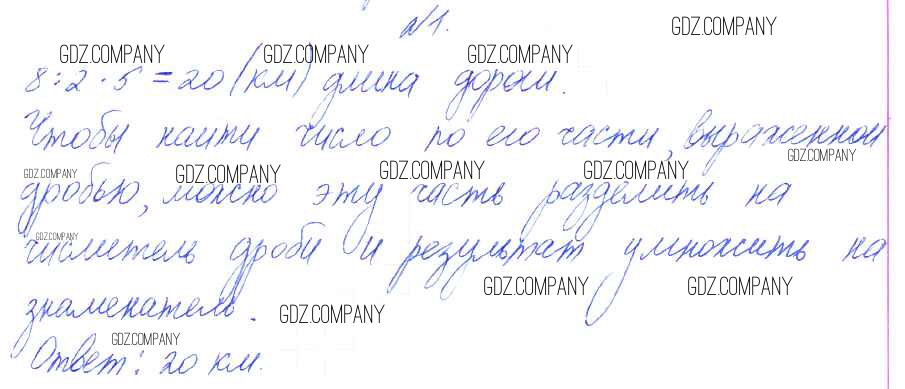 №1.
GDZ.COMPANY
GDZ.COMPANY GDZ.COMPANY GDZ.COMPANY
8:2·5=20 (км) длина дороги.
Чтобы найти число по его части, выраженной
GDZ.COMPANY
GDZ.COMPANY GDZ.COMPANY GDZ.COMPANY GDZ.COMPANY
дробью, можно эту часть разделить на
GDZ.COMPANY
числитель дроби и результат умножить на
GDZ.COMPANY GDZ.COMPANY
знаменатель.
GDZ.COMPANY
GDZ.COMPANY
Ответ: 20 км.